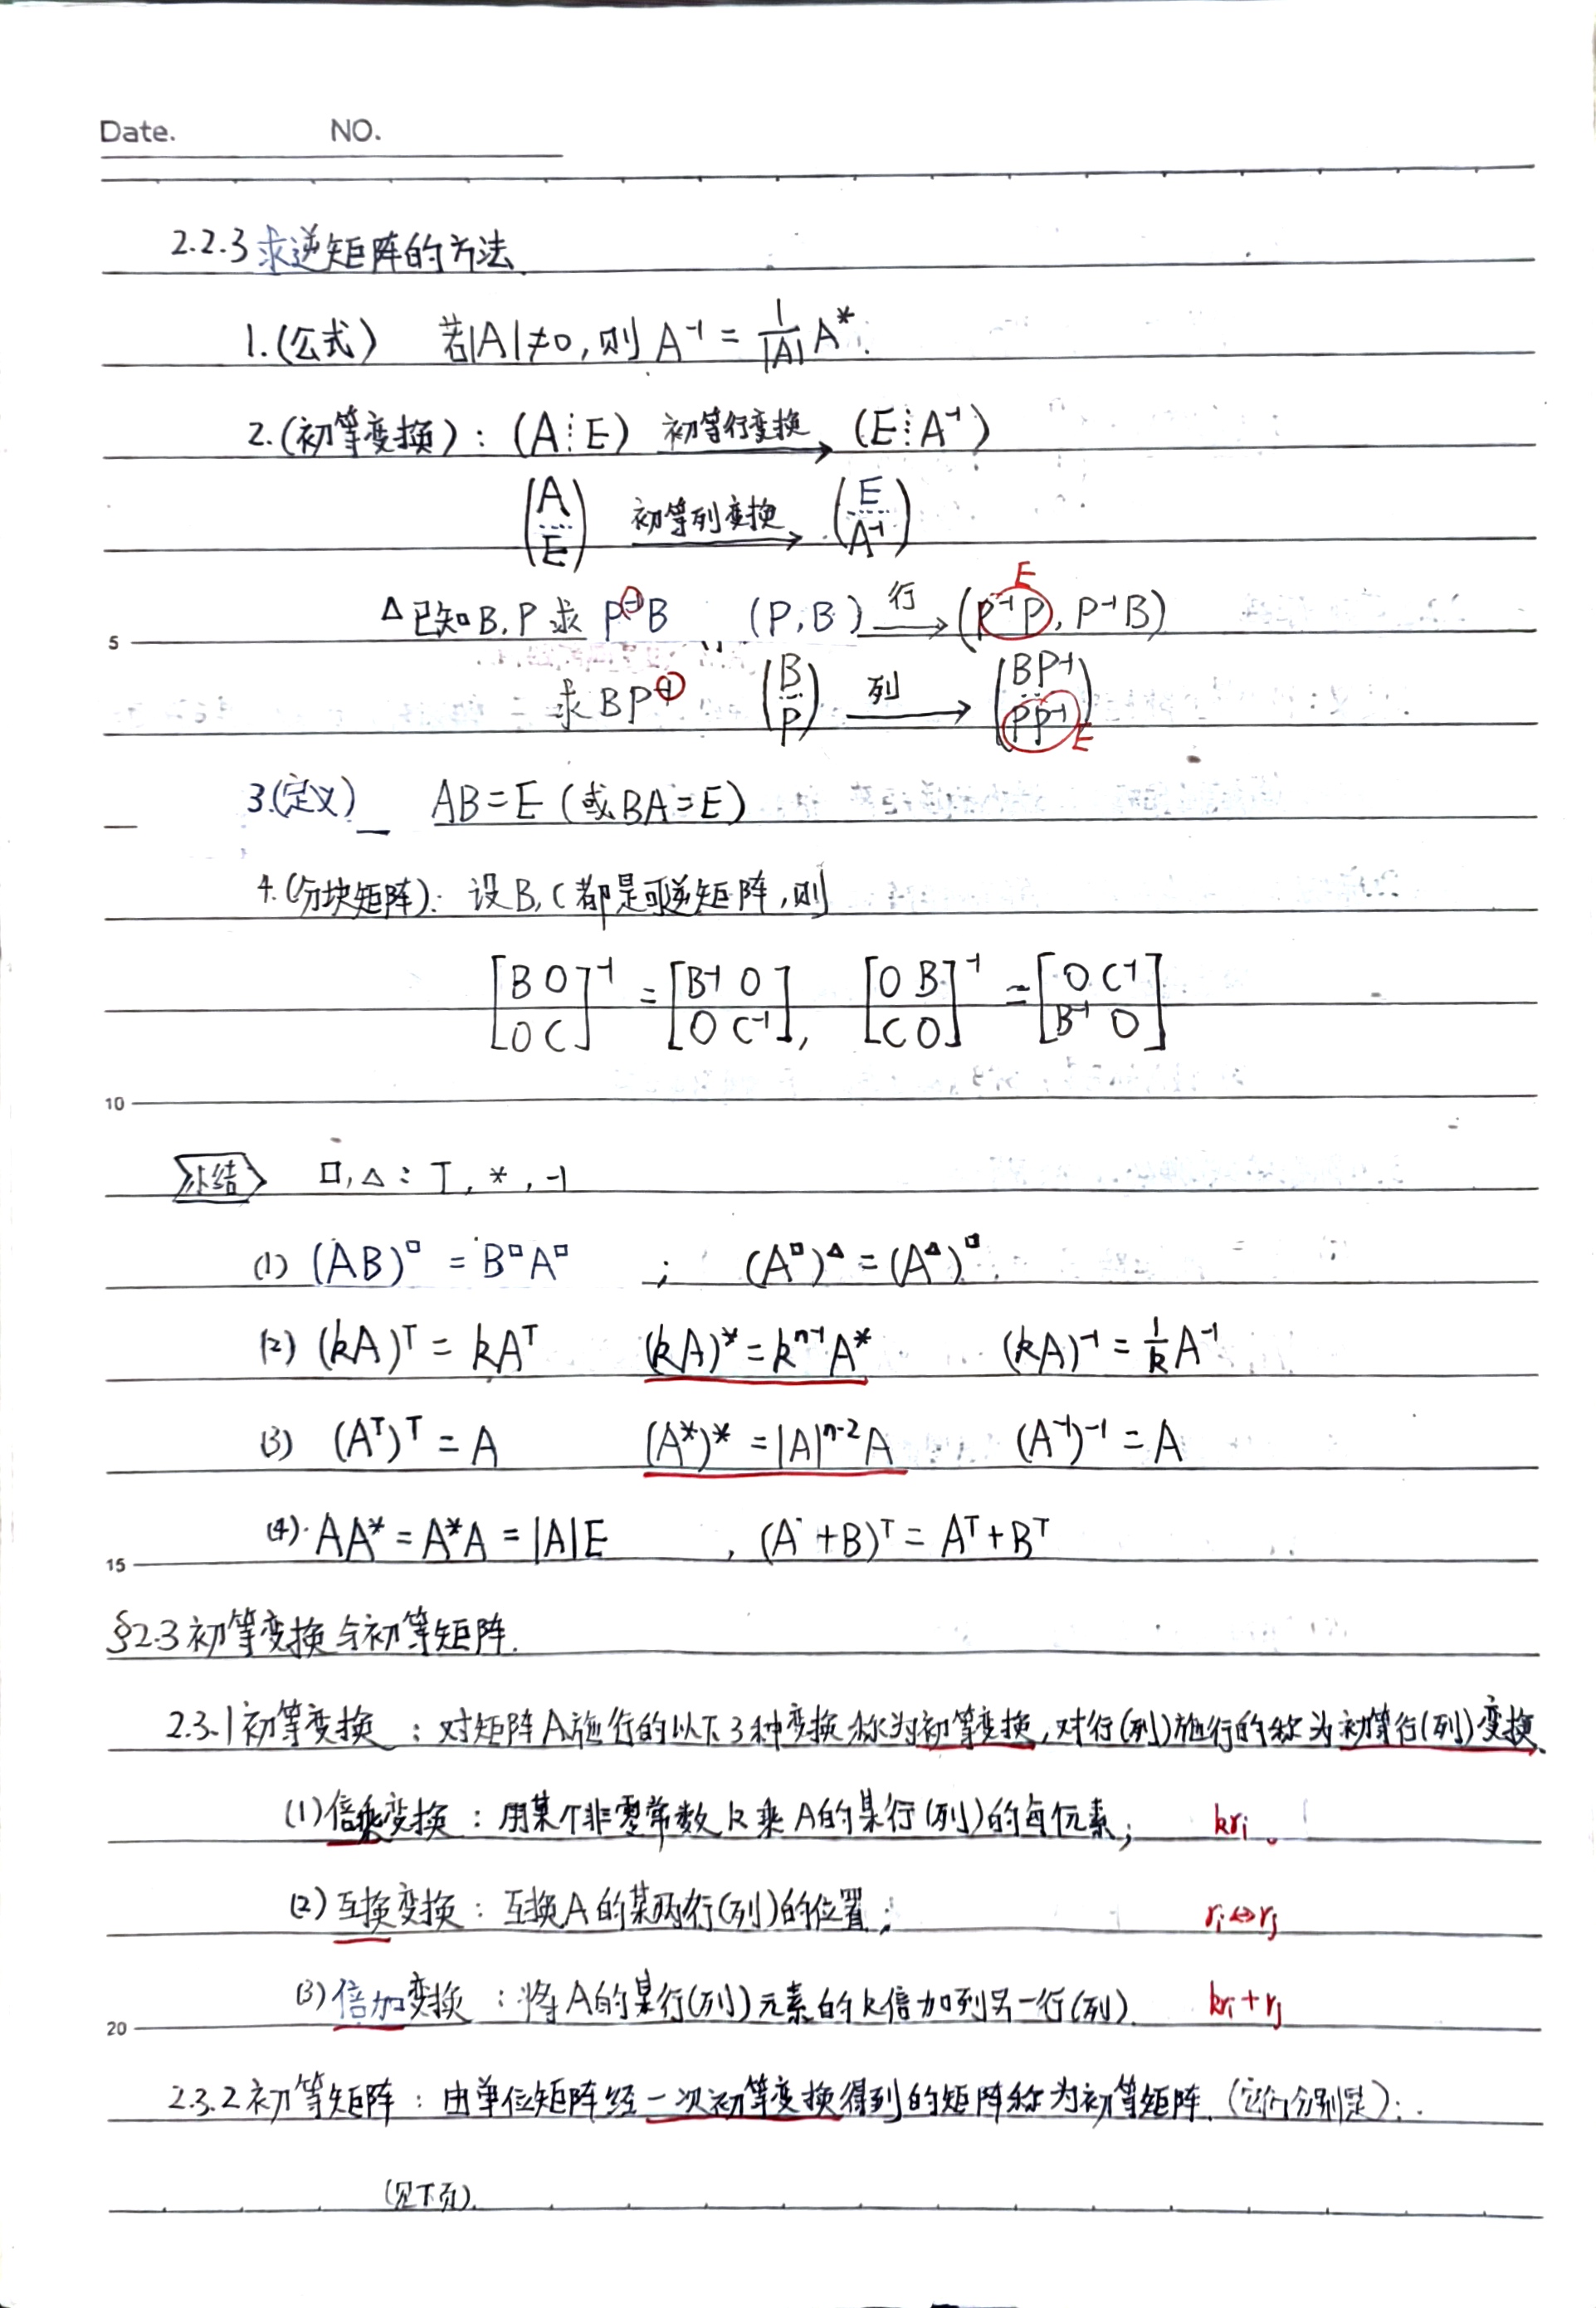 Date. NO.
2.2.3 求逆矩阵的方法.
1.(公式) 若|A|≠0,则 A⁻¹ = 1/|A| A*.
2.(初等变换): (A⋮E) 初等行变换→ (E⋮A⁻¹)
(A/E) 初等列变换→ (E/A⁻¹)
△已知B,P 求 P⁻¹B (P,B) 行→ (P⁻¹P, P⁻¹B) E
5
求BP⁻¹ (B/P) 列→ (BP⁻¹/PP⁻¹) E
3.(定义) AB=E (或BA=E)
4.(分块矩阵): 设B,C都是可逆矩阵,则
[B O / O C]⁻¹ = [B⁻¹ O / O C⁻¹], [O B / C O]⁻¹ = [O C⁻¹ / B⁻¹ O]
10
小结 □,△: T, *, -1
(1) (AB)^□ = B^□A^□ ; (A^□)^△ = (A^△)^□
(2) (kA)ᵀ = kAᵀ (kA)* = kⁿ⁻¹A* (kA)⁻¹ = 1/k A⁻¹
(3) (Aᵀ)ᵀ = A (A*)* = |A|ⁿ⁻²A (A⁻¹)⁻¹ = A
(4). AA* = A*A = |A|E , (A+B)ᵀ = Aᵀ+Bᵀ
15
§2.3 初等变换与初等矩阵.
2.3.1 初等变换 : 对矩阵A施行的以下3种变换称为初等变换,对行(列)施行的称为初等行(列)变换.
(1) 倍乘变换 : 用某个非零常数k乘A的某行(列)的每个元素; krᵢ
(2) 互换变换 : 互换A的某两行(列)的位置; rᵢ↔rⱼ
(3) 倍加变换 : 将A的某行(列)元素的k倍加到另一行(列). krᵢ+rⱼ
20
2.3.2 初等矩阵 : 由单位矩阵经一次初等变换得到的矩阵称为初等矩阵. (它们分别是):
(见下页).